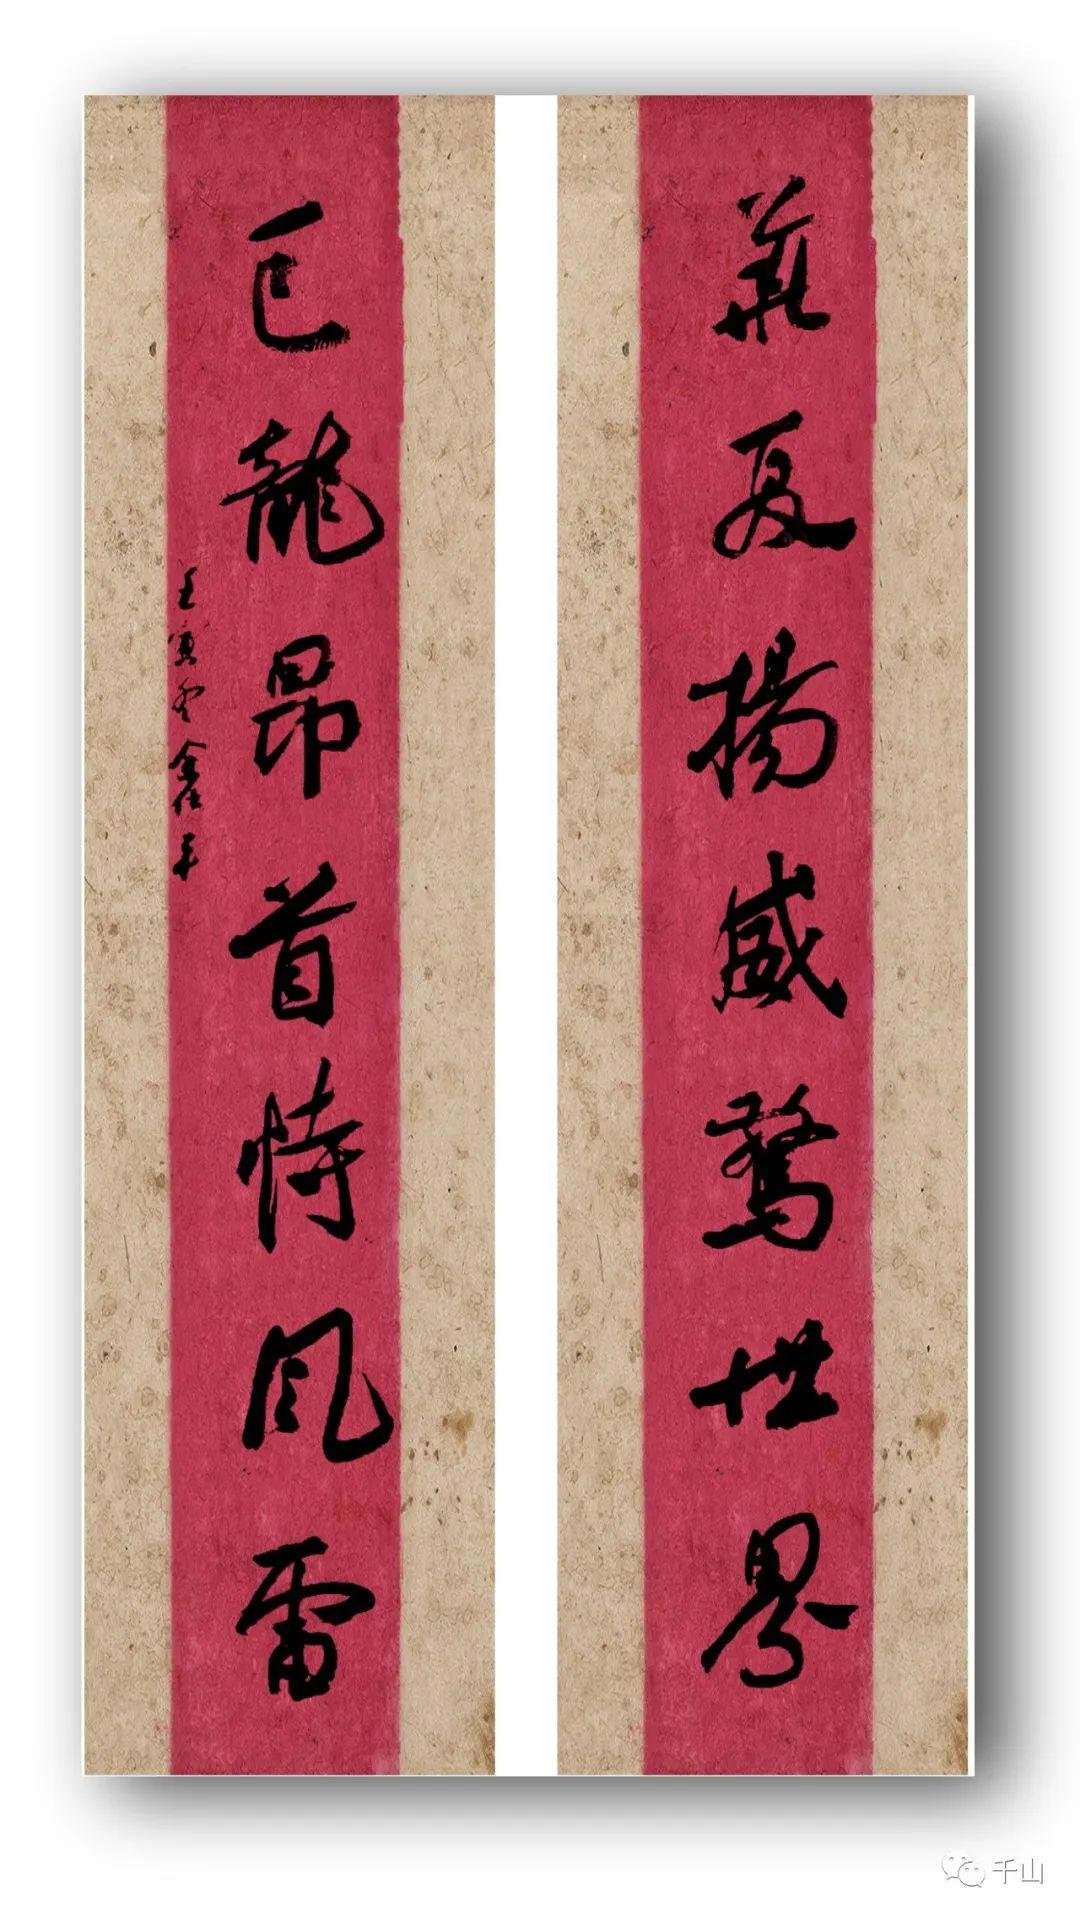 華夏揚威驚世界
巨龍昂首恃風雷
壬寅冬
千山